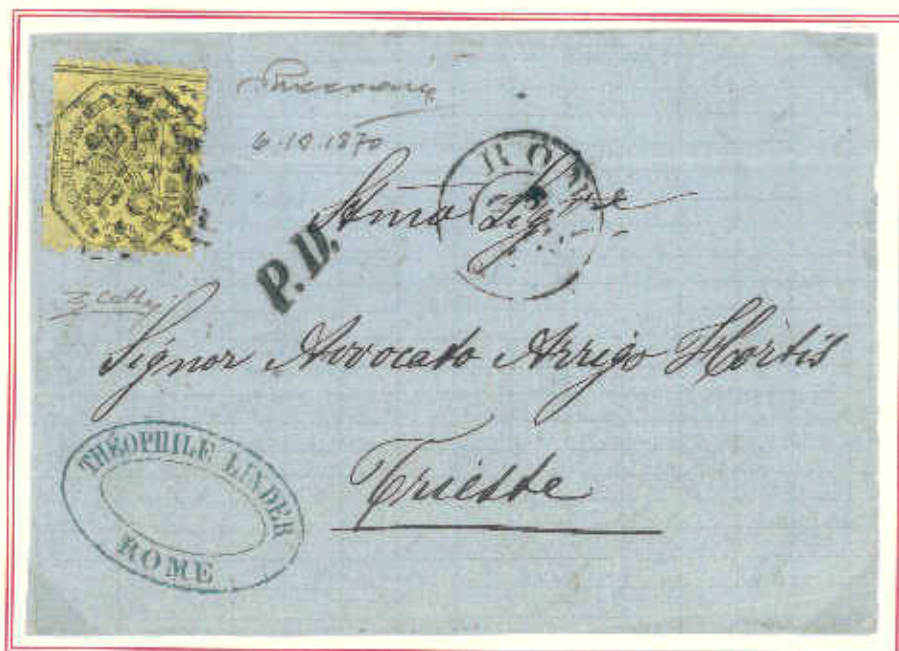 6.10.1870
ROMA
P.D.
Stimo Sigre
Signor Avvocato Arrigo Hortis
Trieste
THÉOPHILE LINDER
ROME